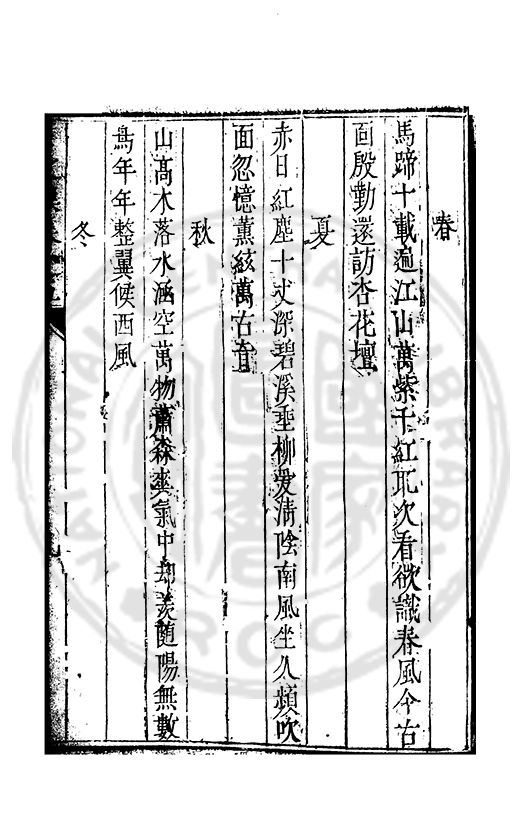 春
馬蹄十載遍江山萬紫千紅取次看欲識春風今古
面殷勤還訪杏花壇
夏
赤日紅塵十丈深碧溪垂柳愛清陰南風坐久頻吹
面忽憶薰絃萬古音
秋
山髙木落水涵空萬物蕭森爽氣中却羡随陽無數
鳥年年整翼候西風
冬